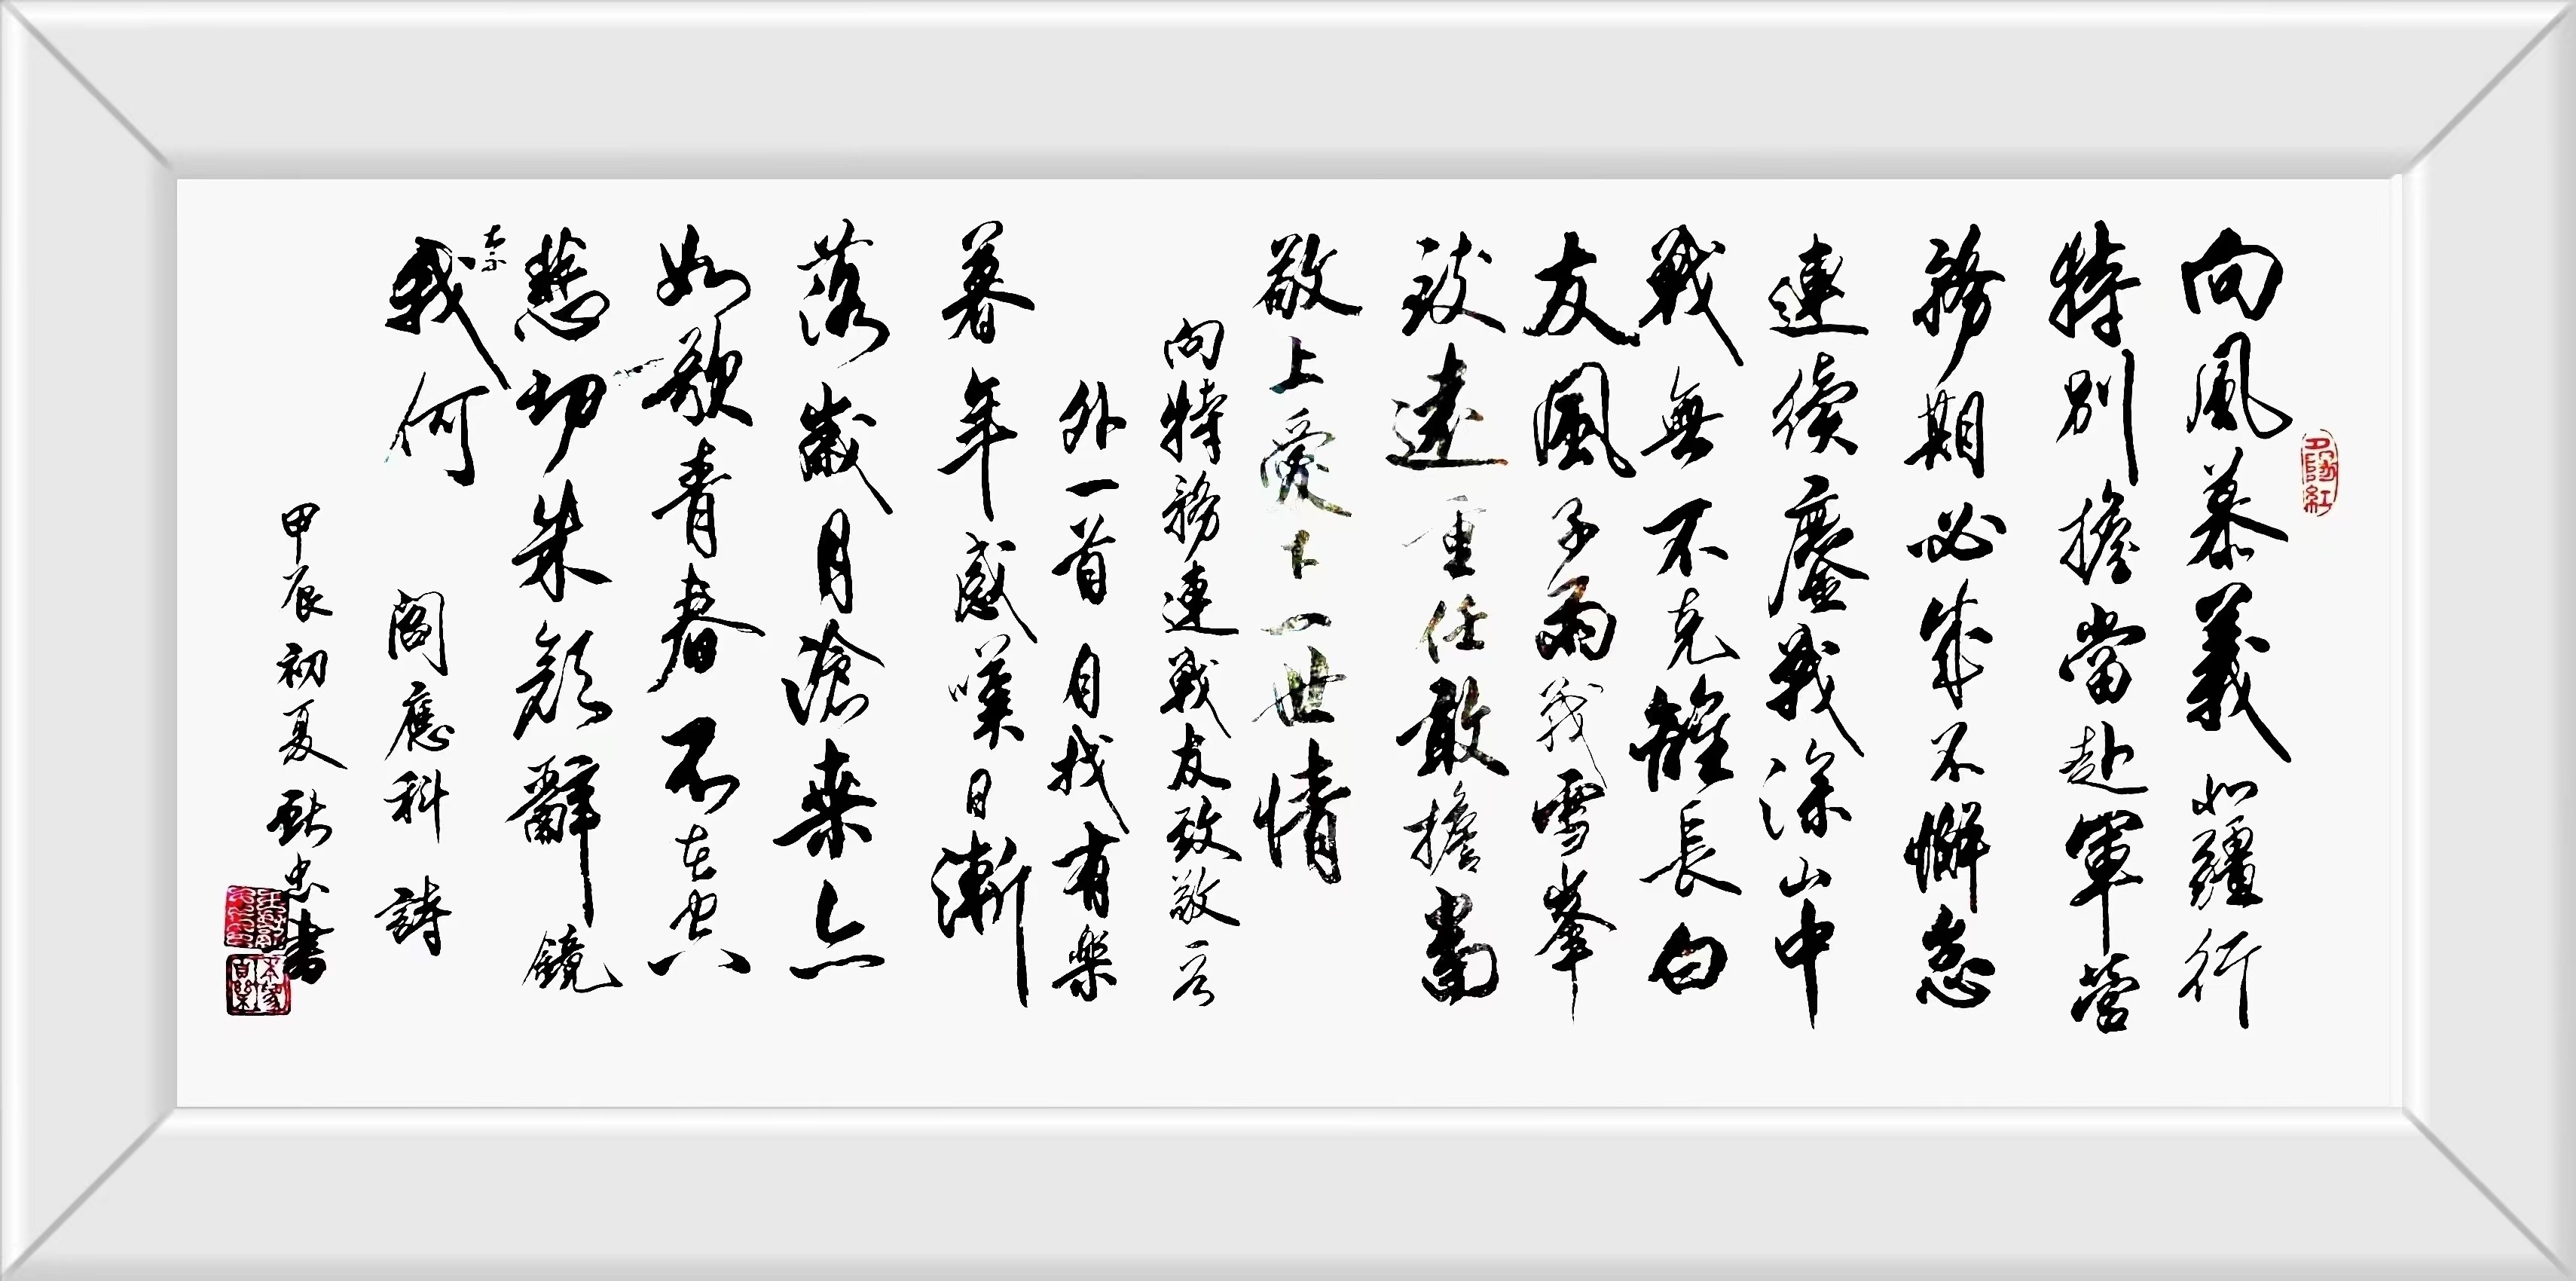 向風慕義如疆行
特別擔當赴軍營
務期必成不懈怠
連續鏖戰深山中
戰無不克離長白
友風子雨戰雪峯
致遠重任敢擔當
敬上愛下一世情
向特務連戰友致敬
外一首 自找有樂
暮年感嘆日漸
落歲月滄桑亦
如歌青春不在空
悲切朱顏辭鏡
奈
我何
閻應科詩
甲辰初夏 忠書